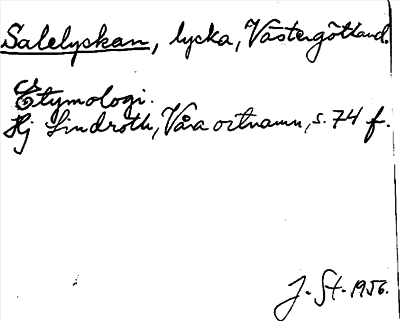 Salelyckan, lycka, Västergötland.
Etymologi.
Hj Lindroth, Våra ortnamn, s. 74 f.
J. St. 1956.